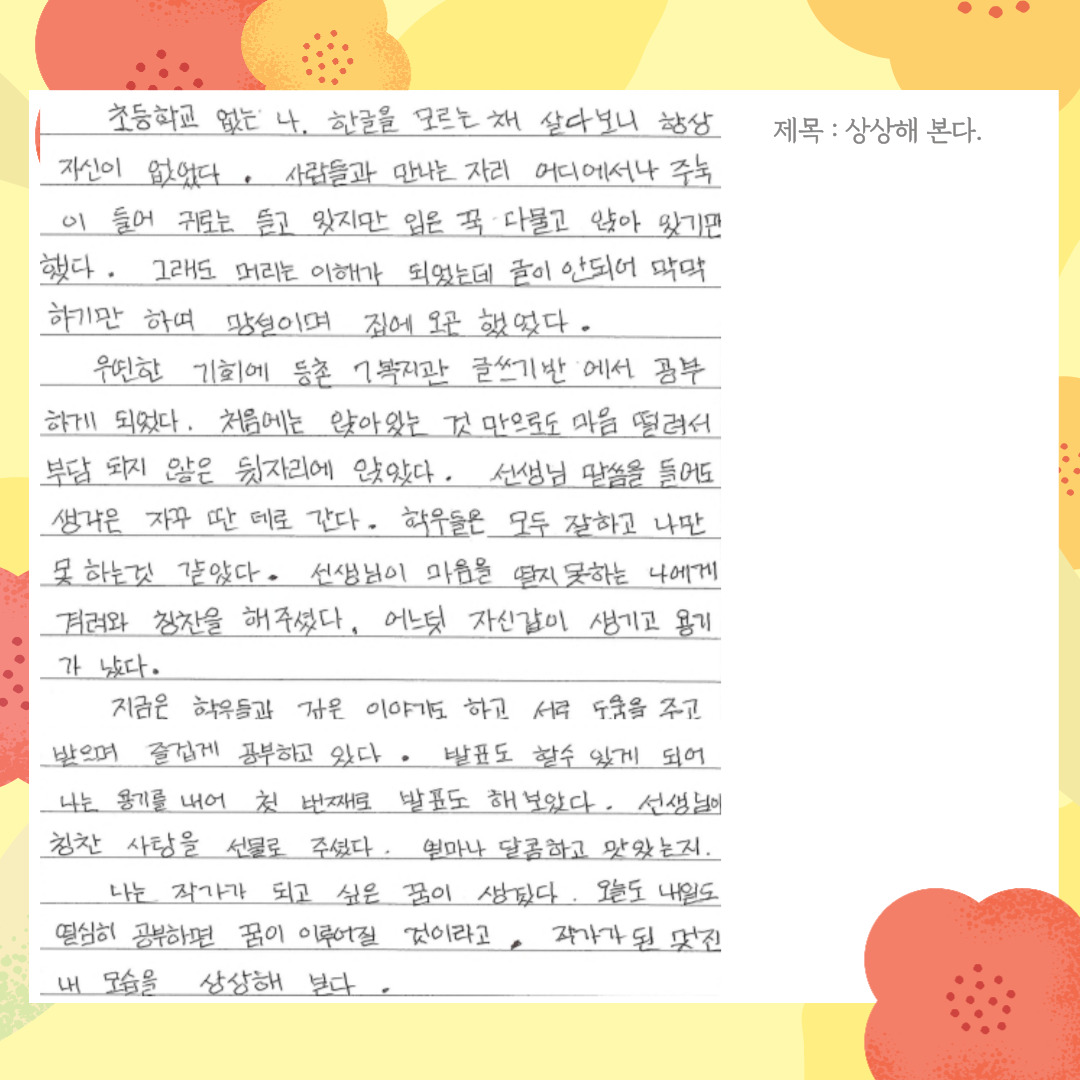 제목 : 상상해 본다.
초등학교 없는 나. 한글을 모르는 채 살다보니 항상
자신이 없었다. 사람들과 만나는 자리 어디에서나 주눅
이 들어 귀로는 듣고 있지만 입은 꾹 다물고 앉아 있기만
했다. 그래도 머리는 이해가 되었는데 글이 안되어 막막
하기만 하며 망설이며 집에 오곤 했었다.
우연한 기회에 등촌 7복지관 글쓰기반에서 공부
하게 되었다. 처음에는 앉아있는 것 만으로도 마음 떨려서
부담 되지 않은 뒷자리에 앉았다. 선생님 말씀을 들어도
생각은 자꾸 딴 데로 간다. 학우들은 모두 잘하고 나만
못 하는것 같았다. 선생님이 마음을 열지 못하는 나에게
격려와 칭찬을 해주셨다. 어느덧 자신감이 생기고 용기
가 났다.
지금은 학우들과 같은 이야기도 하고 서로 도움을 주고
받으며 즐겁게 공부하고 있다. 발표도 할수 있게 되어
나는 용기를 내어 첫 번째로 발표도 해보았다. 선생님이
칭찬 사탕을 선물로 주셨다. 얼마나 달콤하고 맛있는지.
나는 작가가 되고 싶은 꿈이 생겼다. 오늘도 내일도
열심히 공부하면 꿈이 이루어질 것이라고. 작가가 된 멋진
내 모습을 상상해 본다.